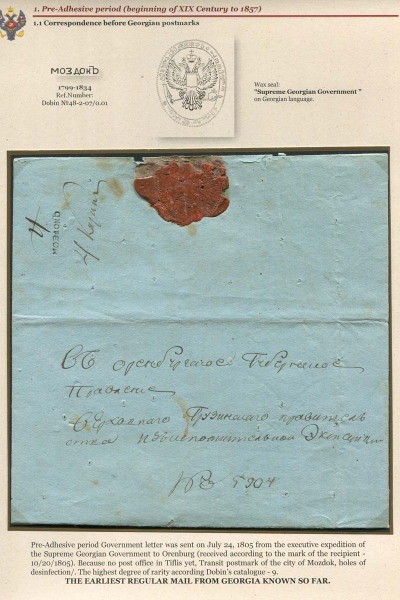 1. Pre-Adhesive period (beginning of XIX Century to 1857)
1.1 Correspondence before Georgian postmarks
МОЗДОКЪ
1799-1834
Ref.Number:
Dobin №48-2-07/0.01
Wax seal:
"Supreme Georgian Government "
on Georgian language.
МОЗДОКЪ
Въ оренбургское Губернское
Правление
Верховнаго Грузинскаго правитель
ства изъ исполнительной Экспедиции
Pre-Adhesive period Government letter was sent on July 24, 1805 from the executive expedition of
the Supreme Georgian Government to Orenburg (received according to the mark of the recipient -
10/20/1805). Because no post office in Tiflis yet, Transit postmark of the city of Mozdok, holes of
desinfection/. The highest degree of rarity according Dobin's catalogue - 9.
THE EARLIEST REGULAR MAIL FROM GEORGIA KNOWN SO FAR.